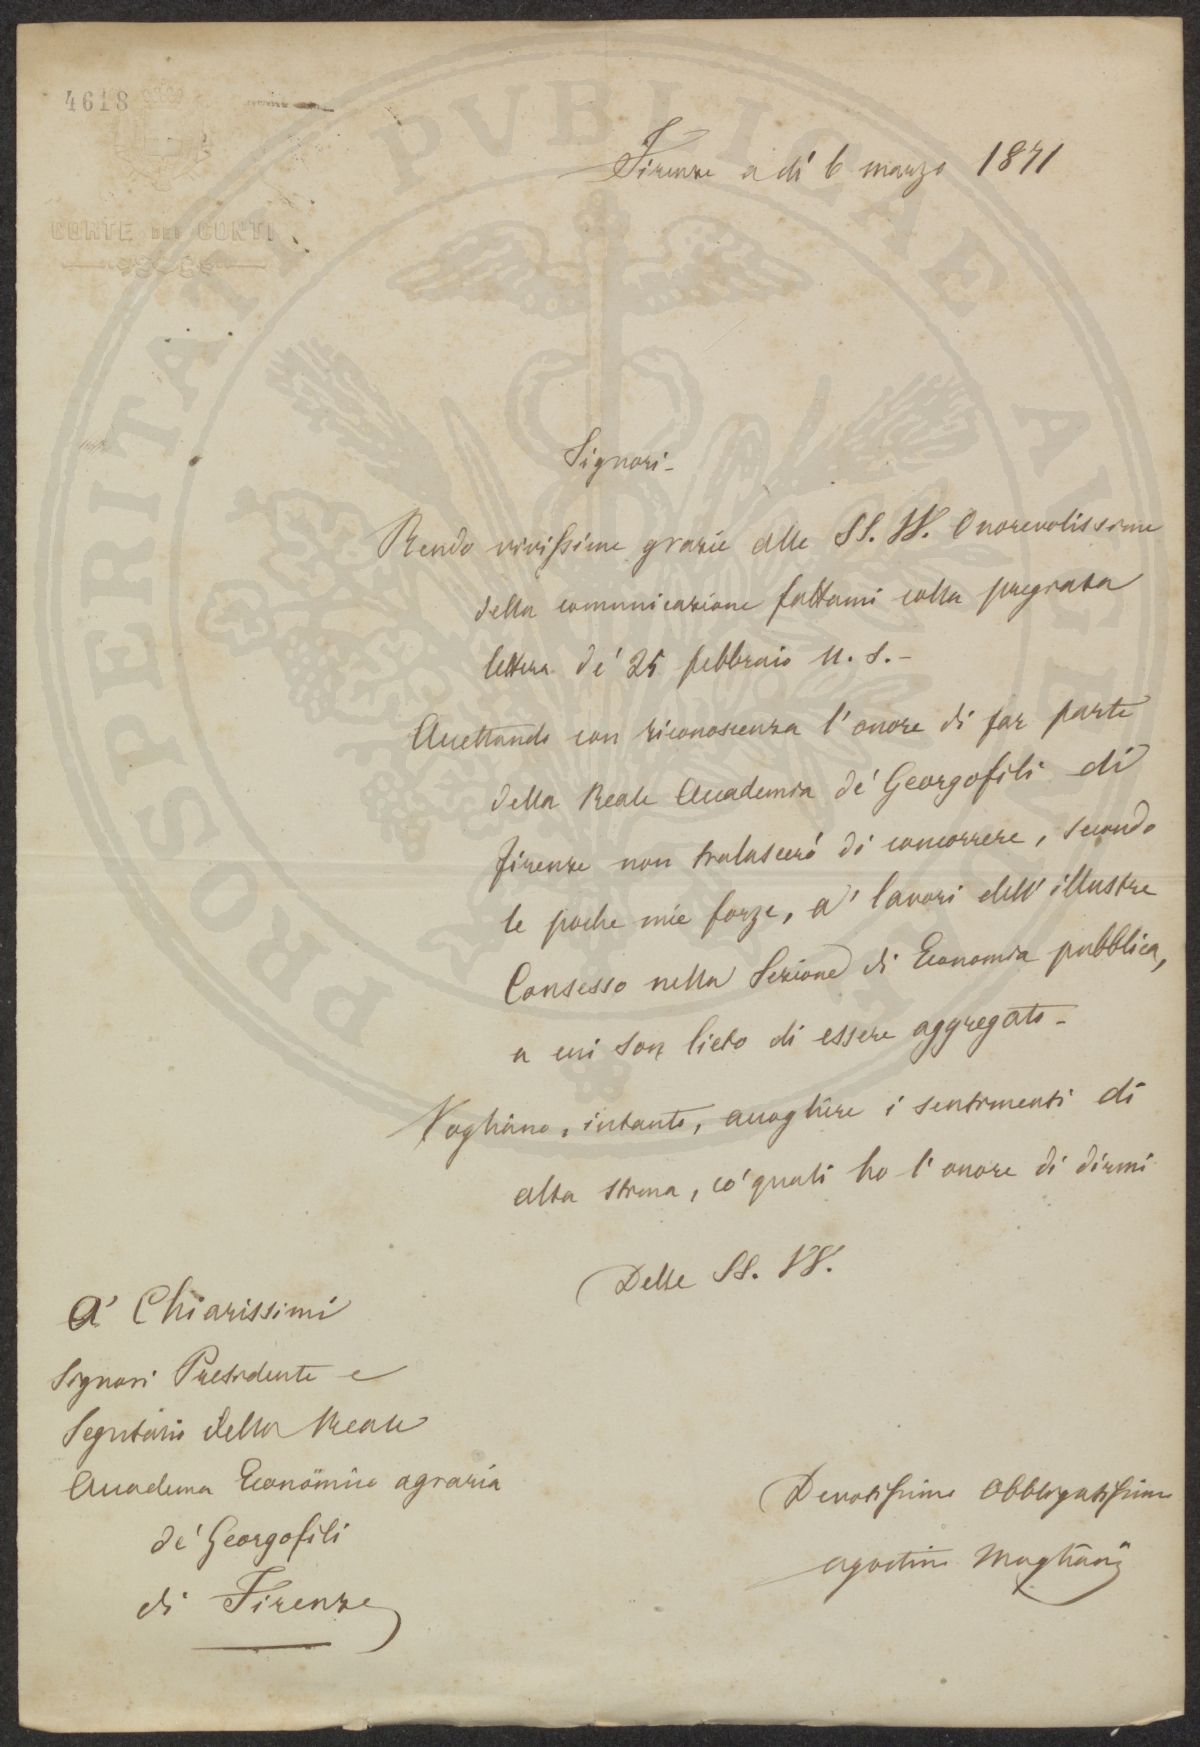 4618
CORTE DEI CONTI
Firenze a dì 6 marzo 1871
Signori-
Rendo vivissime grazie alle SS. VV. Onorevolissime
della comunicazione fattami colla pregiata
lettera de' 25 febbraio u. s.-
Accettando con riconoscenza l'onore di far parte
della Reale Accademia de' Georgofili di
Firenze non tralascerò di concorrere, secondo
le poche mie forze, a' lavori dell'illustre
Consesso nella Sezione di Economia pubblica,
a cui son lieto di essere aggregato-
Vogliano, intanto, accogliere i sentimenti di
alta stima, co' quali ho l'onore di dirmi
Delle SS. VV.
A' Chiarissimi
Signori Presidente e
Segretario della Reale
Accademia Economico agraria
de' Georgofili
di Firenze
Devotissimo Obbligatissimo
Agostino Magliani
PROSPERITATI PVBLICAE AVGENDAE